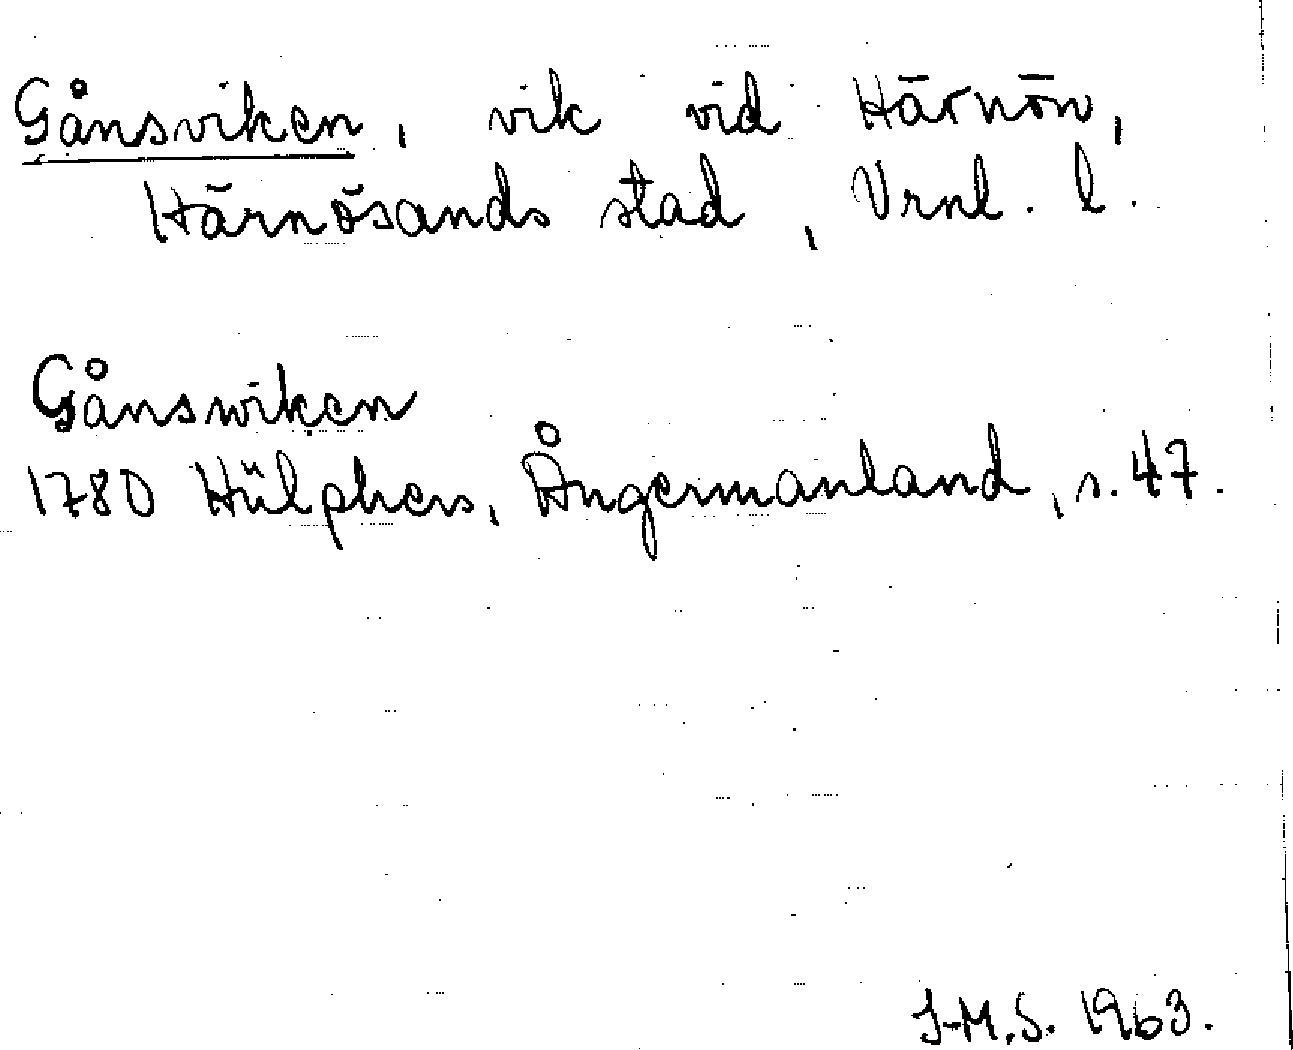 Gånsviken, vik vid Härnön,
Härnösands stad, Vrnl. l.
Gånswiken
1780 Hülphers, Ångermanland, s. 47.
I-M.S. 1963.